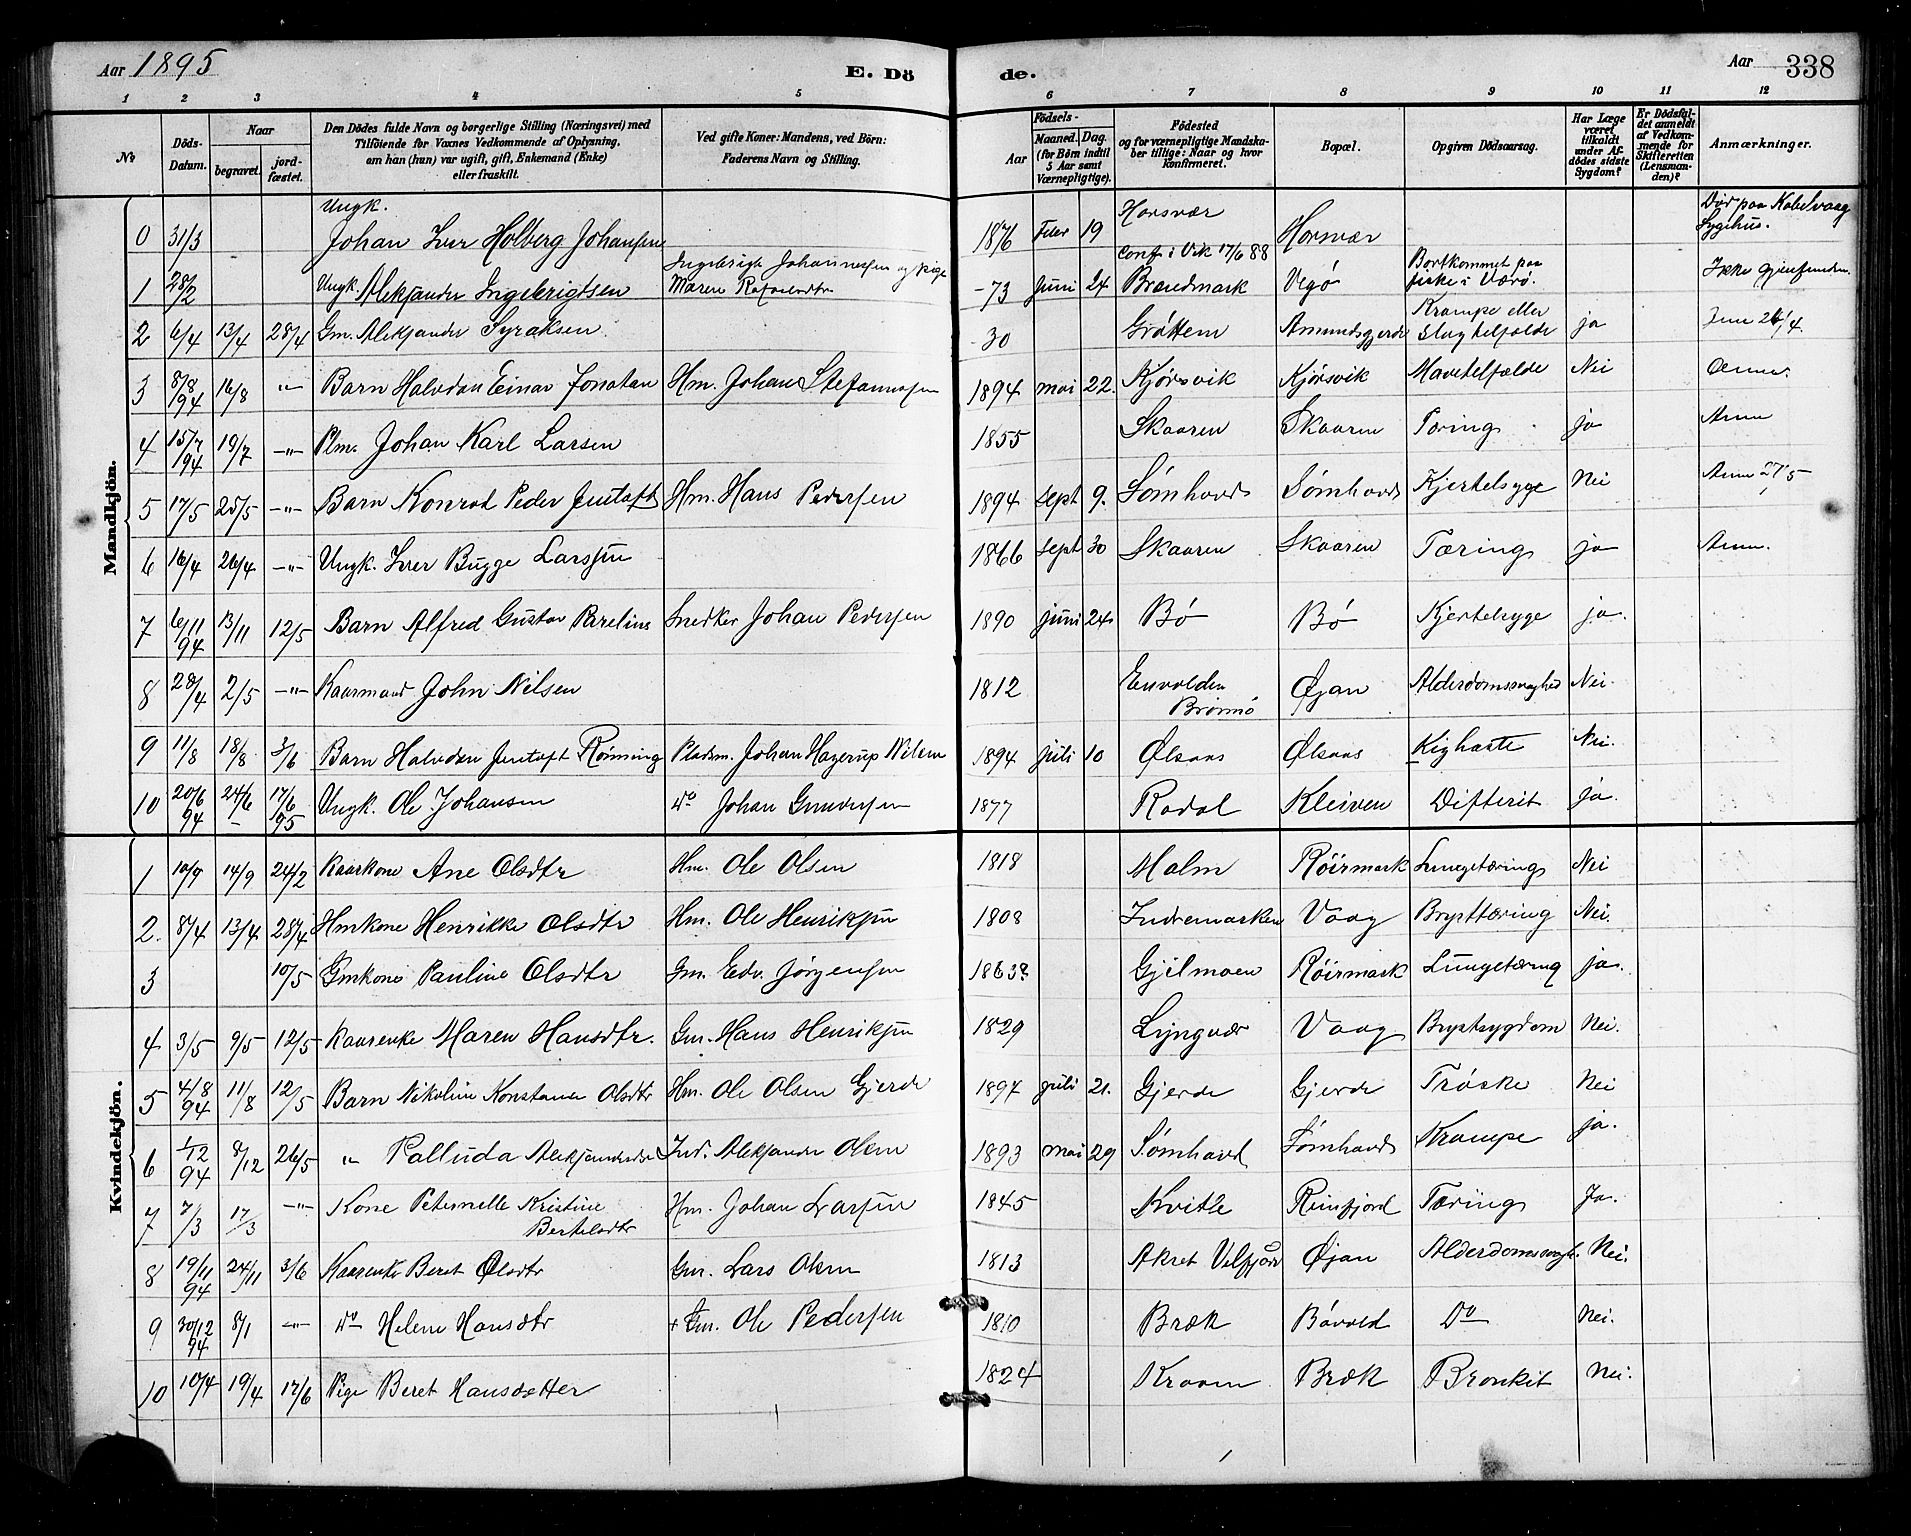 Aar 1895
E. Dö
de.
Aar 338
1 2 3 4 5 6 7 8 9 10 11 12
No
Döds-Datum.
Naar
begravet.
jordfæstet.
Den Dödes fulde Navn og borgerlige Stilling (Næringsvei) med
Tilföiende for Voxnes Vedkommende af Oplysning,
om han (hun) var ugift, gift, Enkemand (Enke)
eller fraskilt.
Ved gifte Koner: Mandens, ved Börn:
Faderens Navn og Stilling.
Födsels-
Aar
Maaned. Dag.
(for Börn indtil
5 Aar samt
Værnepligtige).
Födested
og for værnepligtige Mandska-
ber tillige: Naar og hvor
konfirmeret.
Bopæl.
Opgiven Dödsaarsag.
Har Læge
været
tilkaldt
under Af-
dödes sidste
Sygdom?
Er Dödsfal-
det anmeldt
af Vedkom-
mende for
Skifteretten
(Lensman-
den)?
Anmærkninger.
Mandkjön.
0 31/3 Ungk. Johan Iver Holberg Johansen 1876 Febr 19 Horsvær Conf i Vik 17/6 88 Horsvær Død paa Kabelvaag Sygehus.
1 28/2 Ungk. Aleksander Ingebrigtsen Ingebrigt Johannessen og pige Maren Rafaelsdtr -73 Juni 24 Brændmark Vegø Bortkommet paa fiske i Værø. Ikke gjenfunden
2 6/4 13/4 28/4 Gm. Aleksander Syraksen -30 Grøttem Amundsgjerde Krampe eller Slagtilfælde ja
3 8/8 94 16/8 -"- Barn Halvdan Einar Jonatan Hm. Johan Stefannsen 1894 mai 22. Kjørsvik Kjørsvik Mavetilfælde Nei
4 15/7 1894 19/7 -"- Plm. Johan Karl Larsen 1855 Skaaren Skaaren Tæring ja Anm
5 17/5 25/5 -"- Barn Konrad Peder Jentoft Hm. Hans Pedersen 1894 Sept 9. Sømhovd Sømhovd Kjertelsyge Nei Anm 27/5
6 16/4 26/4 -"- Ungk. Iver Bugge Larssen 1866 Sept 30 Skaaren Skaaren Tæring ja Anm.
7 6/11 94 13/11 12/5 Barn Alfred Gustav Parelius Snedker Johan Pedersen 1890 juni 24 Bø Bø Kjertelsyge ja.
8 28/4 2/5 -"- Kaarmand John Nilsen 1812 Brønnø Øjan Alderdomssvaghed Nei.
9 11/8 18/8 3/6 Barn Halvdan Jentoft Rønning Pladsm. Johan Hagerup Nilsen 1894 juli 10 Ølsaas Ølsaas Kighoste Nei.
10 20/6 94 24/6 17/6 95 Ungk. Ole Johansen do Johan Gundersen 1877 Rødøl Kleiven Difterit ja.
Kvindekjön.
1 10/9 14/9 24/2 Kaarkone Ane Olsdtr Hm. Ole Olsen 1818 Malm Røirmark Lungetæring Nei
2. 8/4 13/4 28/4 Hmkone Henrikke Olsdtr Hm. Ole Henriksen 1808 Indremarken Vaag Brysttæring Nei.
3 10/5 Gmkone Pauline Olsdtr Gm. Edv. Jørgensen 1863? Gjilmoen Røirmark Lungetæring ja.
4 3/5 9/5 12/5 Kaarenke Maren Hansdtr. Gm. Hans Henriksen 1829 Lyngvær Vaag Brystsygdom Nei.
5 4/8 94 11/8 12/5 Barn Nikoline Konstance Olsdtr Hm. Ole Olsen Gjerde 1894 juli 21. Gjerde Gjerde Trøske Nei
6 1/12 94 8/12 26/5 " Palluda Aleksandersdtr Ind. Aleksander Olsen 1893 mai 29 Sømhovd Sømhovd Krampe ja.
7 7/3 17/3 -"- Kone Peternelle Kristine Bertelsdtr Hm. Johan Larsen 1845 Kvitle Reinfjord Tæring Ja.
8 19/11 94 24/11 3/6 Kaarenke Beret Olsdtr Gm. Lars Olsen 1813 Akret Velfjord Øjan Alderdomssvagh. Nei.
9 30/12 94 8/1 -"- do Helene Hansdtr + Gm. Ole Pedersen 1810 Bræk Båvold Do Nei.
10 10/4 19/4 17/6 Pige Beret Hansdatter 1824 Kroom Bræk Bronkit Nei.